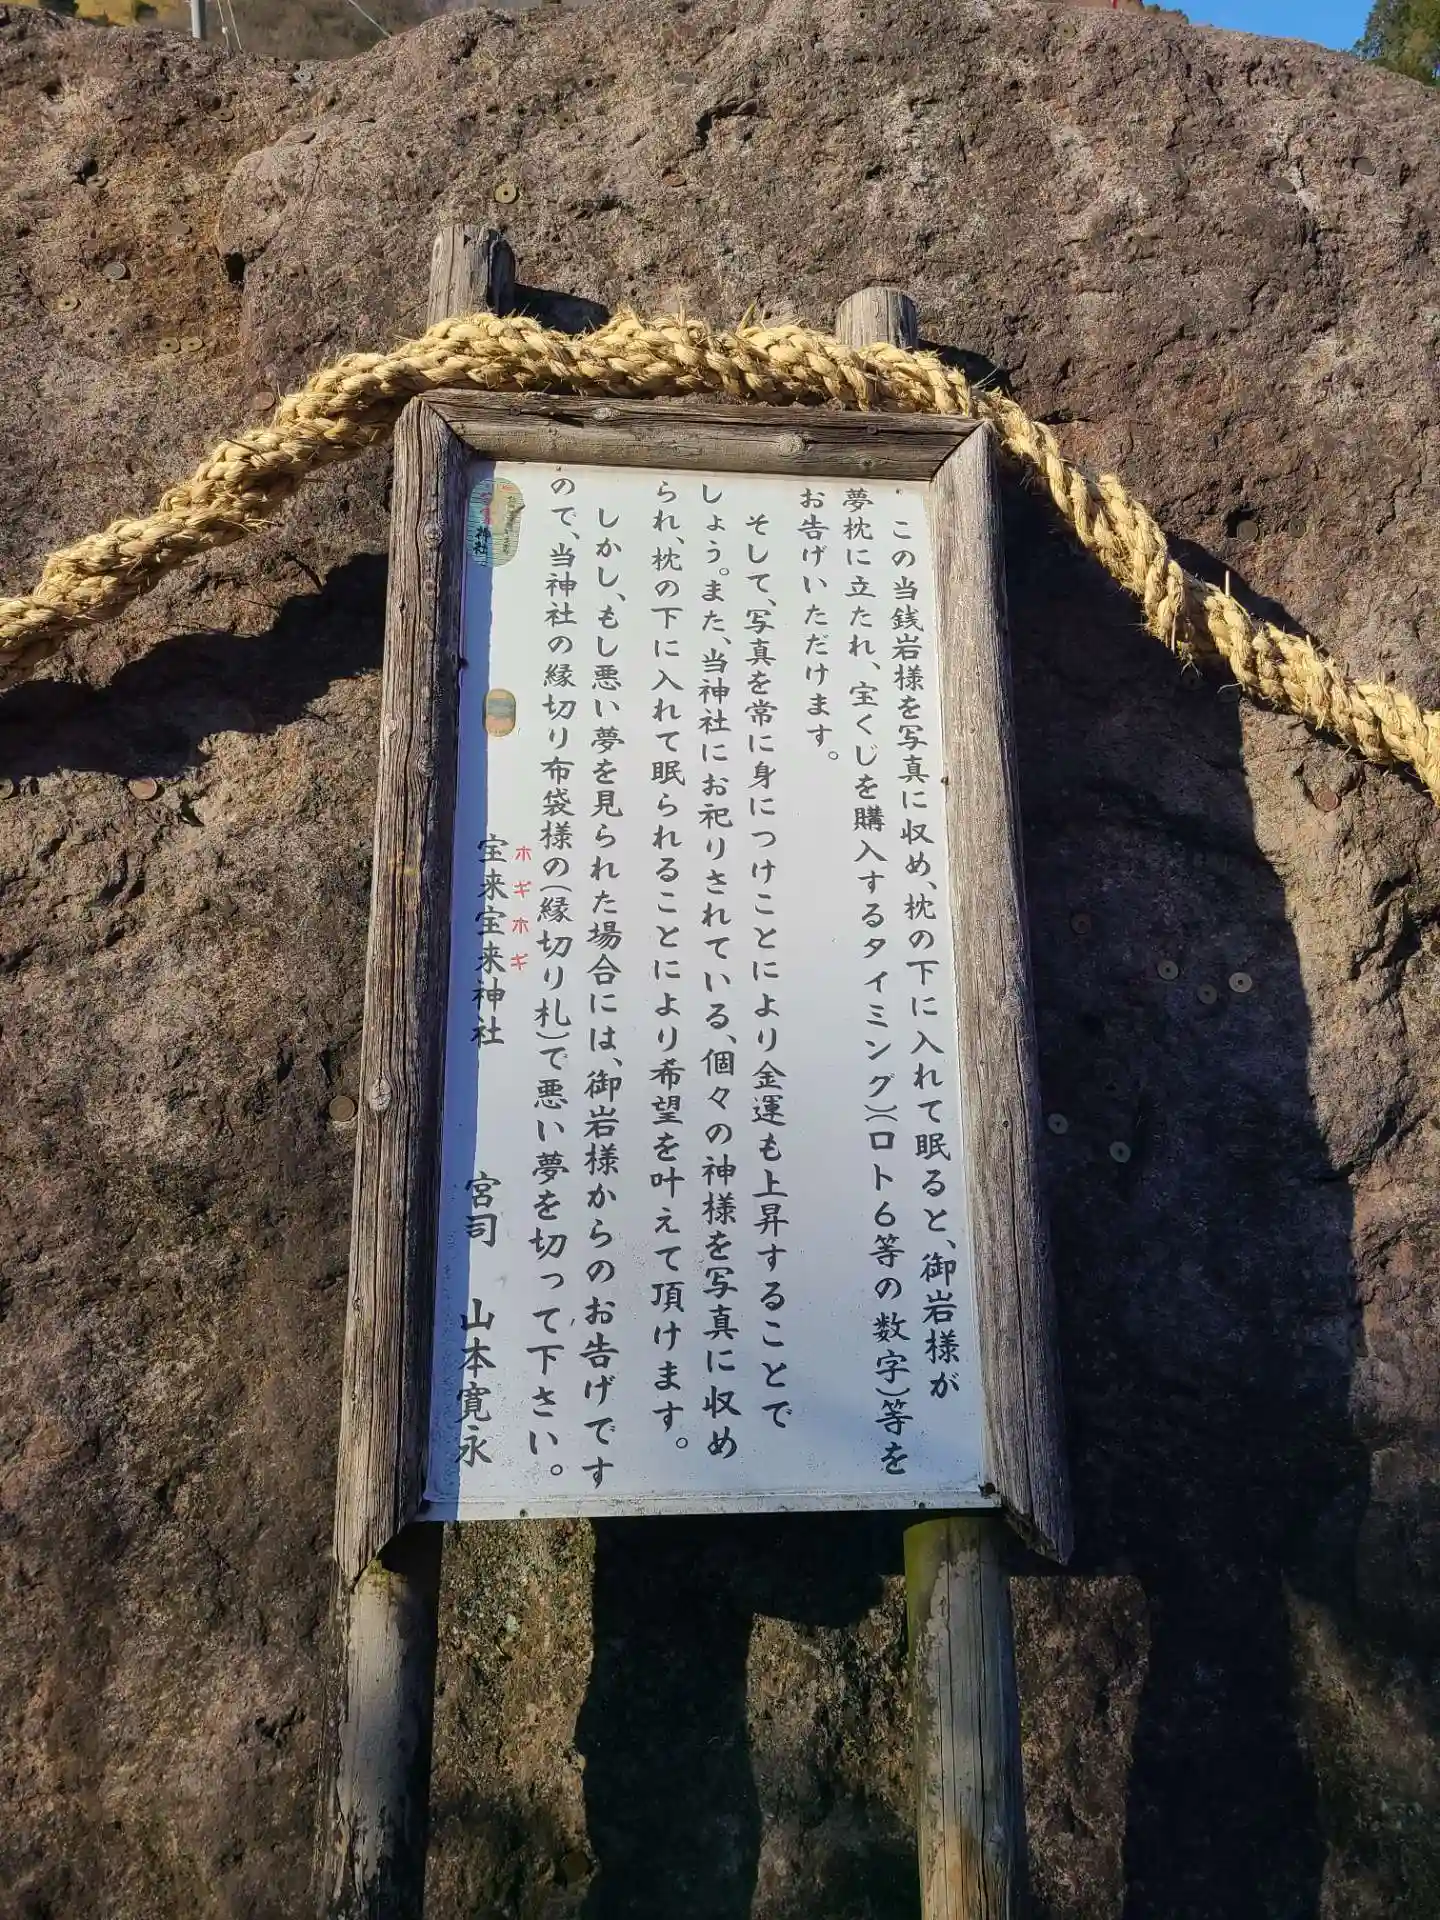 この当銭岩様を写真に収め、枕の下に入れて眠ると、御岩様が
夢枕に立たれ、宝くじを購入するタイミング)(ロト6等の数字)等を
お告げいただけます。
そして、写真を常に身につけことにより金運も上昇することで
しょう。また、当神社にお祀りされている、個々の神様を写真に収め
られ、枕の下に入れて眠られることにより希望を叶えて頂けます。
しかし、もし悪い夢を見られた場合には、御岩様からのお告げです
ので、当神社の縁切り布袋様の(縁切り札)で悪い夢を切って下さい。
ホギホギ
宝来宝来神社 宮司 山本寛永
神社